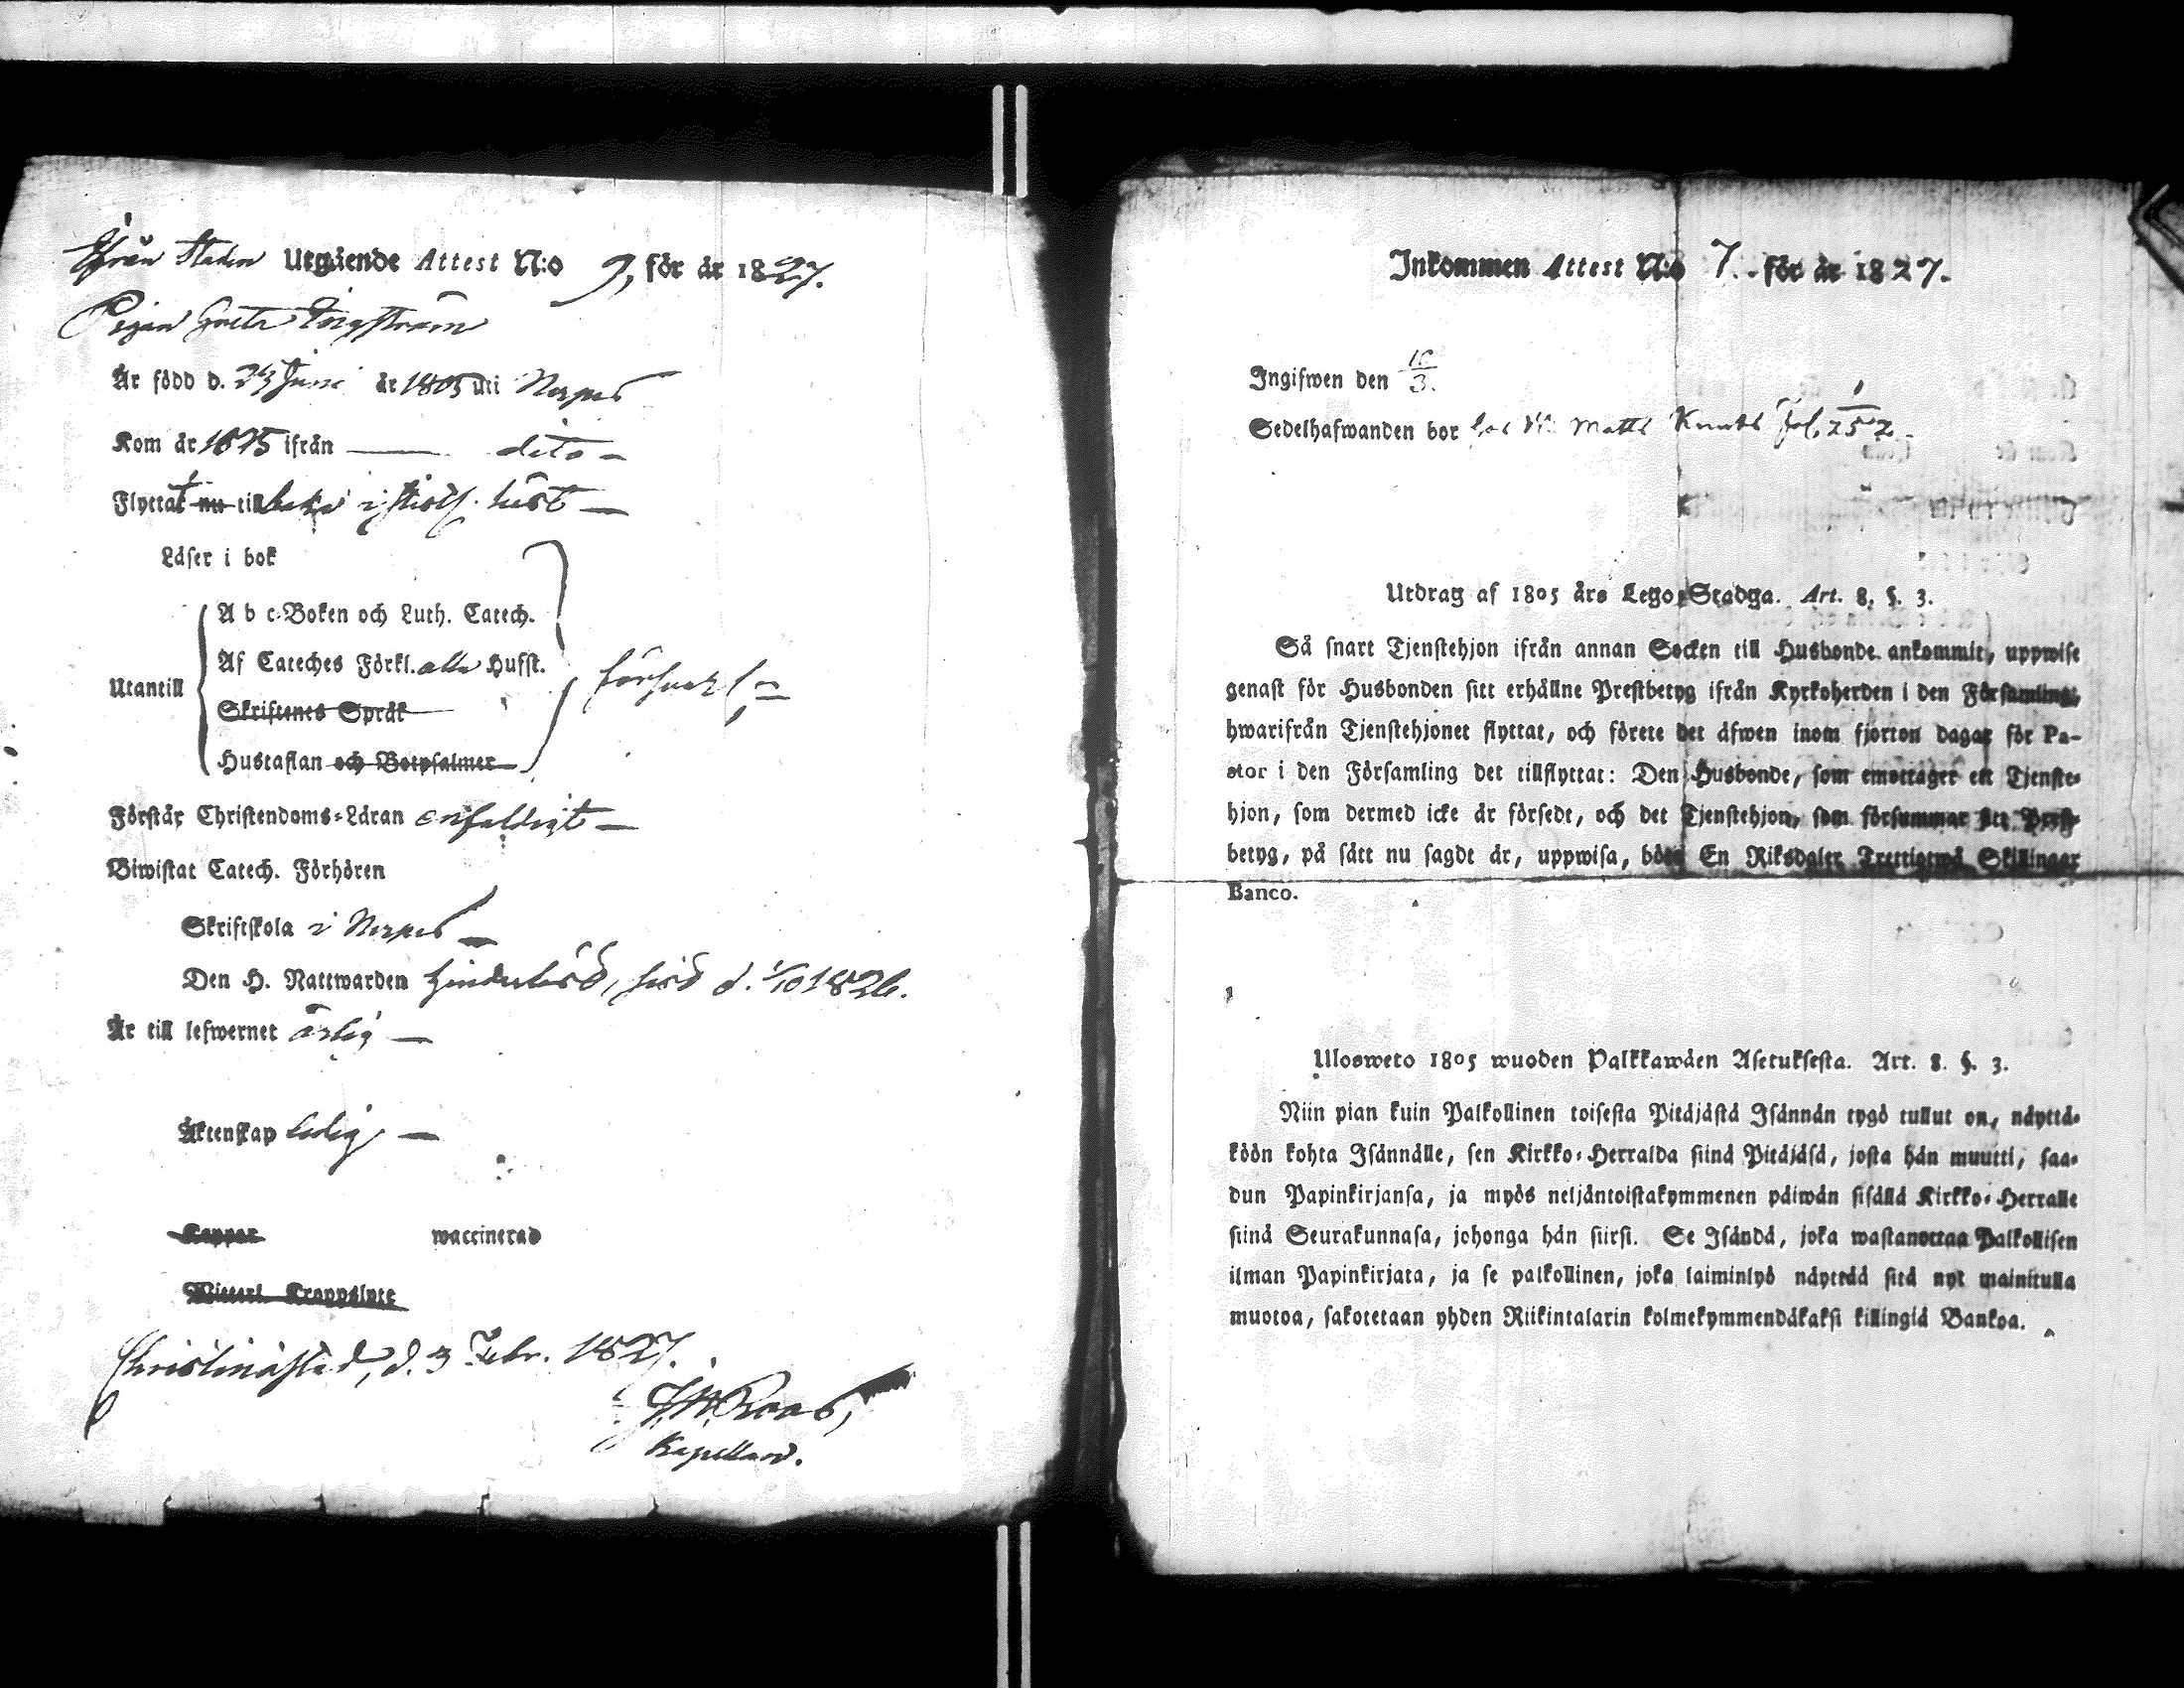 Ifrån Staden Utgående Attest N:o 9, för år 1827.
Pigan Greta Engström
Är född d. 24 Juni år 1805 uti Nerpes
Kom år 1825 ifrån — dito —
Flyttat nu tillbaka sistl. höst —
Läser i bok
A b c-Boken och Luth. Catech.
Af Cateches Förkl. alla Husst.
Utantill
Skriftenes Språk
Hustaflan och Botpsalmer
försvarl. —
Förstår Christendoms-Läran enfaldigt —
Biwistat Catech. Förhören
Skriftskola i Nerpes —
Den H. Nattwarden hinderlös, sist d. 1/10 1826.
Är till lefwernet ärlig —
Äktenskap ledig —
Koppor waccinerad
Witterl. Kroppslyte
Christinæstad, d. 3 Febr. 1827.
Roos,
Kapellan.
Inkommen Attest N:o 7. för år 1827.
Ingifwen den 10/3.
Sedelhafwanden bor hos Matts Knuts Fol. 252.
Utdrag af 1805 års Lego-Stadga. Art. 8. §. 3.
Så snart Tjenstehjon ifrån annan Socken till Husbonde ankommit, uppwise
genast för Husbonden sitt erhållne Prestbetyg ifrån Kyrkoherden i den Församling,
hwarifrån Tjenstehjonet flyttat, och förete det äfwen inom fjorton dagar för Pa-
stor i den Församling det tillflyttat: Den Husbonde, som emottager ett Tjenste-
hjon, som dermed icke är försedt, och det Tjenstehjon, som försummar sitt Prest-
betyg, på sätt nu sagdt är, uppwisa, böte En Riksdaler Trettiotwå Skillingar
Banco.
Ulosweto 1805 wuoden Palkkawäen Asetuksesta. Art. 8. §. 3.
Niin pian kuin Palkollinen toisesta Pitäjästä Isännän tygö tullut on, näyttä-
köön kohta Isännälle, sen Kirkko-Herralda siinä Pitäjäsä, josta hän muutti, saa-
dun Papinkirjansa, ja myös neljäntoistakymmenen päiwän sisällä Kirkko-Herralle
siinä Seurakunnasa, johonga hän siirsi. Se Isändä, joka wastanottaa Palkollisen
ilman Papinkirjata, ja se palkollinen, joka laiminlyö näyttää sitä nyt mainitulla
muotoa, sakotetaan yhden Riikintalarin kolmekymmendäkaksi killingiä Bankoa.